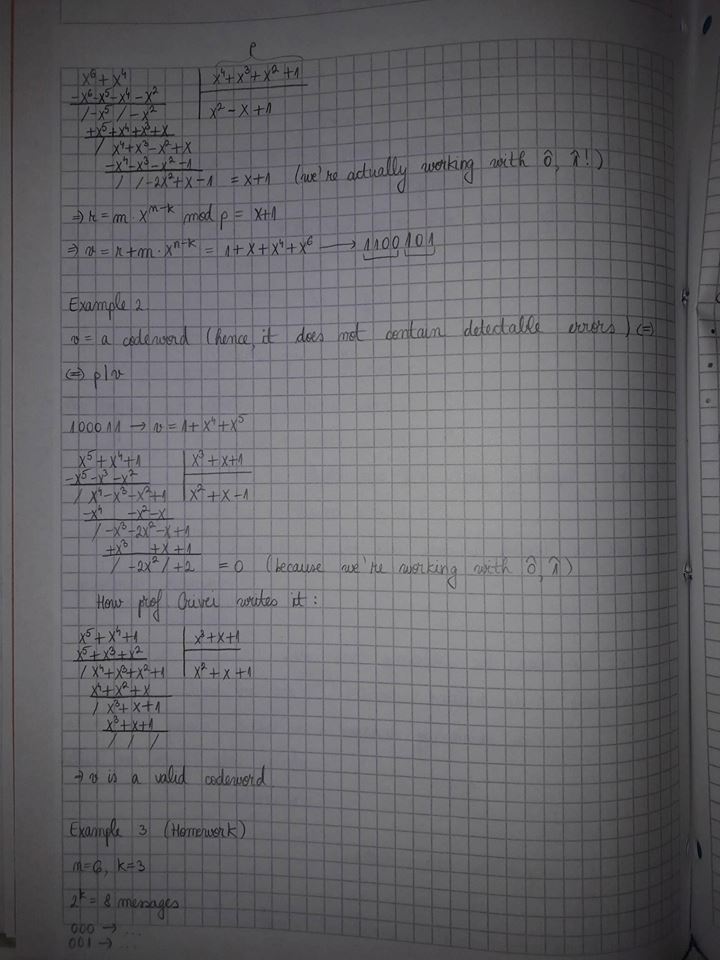 p
x⁶ + x⁴ | x⁴+x³+x²+1
-x⁶-x⁵-x⁴-x² | x² - x + 1
/ -x⁵ / -x²
+x⁵+x⁴+x³+x
/ x⁴+x³-x²+x
-x⁴-x³-x²-1
/ / -2x²+x-1 = x+1 (we're actually working with 0̂, 1̂!)
⇒ r = m · x^(n-k) mod p = x+1
⇒ v = r + m · x^(n-k) = 1+x+x⁴+x⁶ ⟶ 1100 101
Example 2
v = a codeword (hence, it does not contain detectable errors) ⇔
⇔ p | v
100011 → v = 1+x⁴+x⁵
x⁵ + x⁴ + 1 | x³ + x + 1
-x⁵ - x³ - x² | x² + x - 1
/ x⁴ - x³ - x² + 1
-x⁴ - x² - x
/ -x³ - 2x² - x + 1
+x³ + x + 1
/ -2x² / +2 = 0 (because we're working with 0̂, 1̂)
How prof Crivei writes it:
x⁵ + x⁴ + 1 | x³ + x + 1
x⁵ + x³ + x² | x² + x + 1
/ x⁴ + x³ + x² + 1
x⁴ + x² + x
/ x³ + x + 1
x³ + x + 1
/ / /
⇒ v is a valid codeword
Example 3 (Homework)
n=6, k=3
2ᵏ = 8 messages
000 → ...
001 → ...